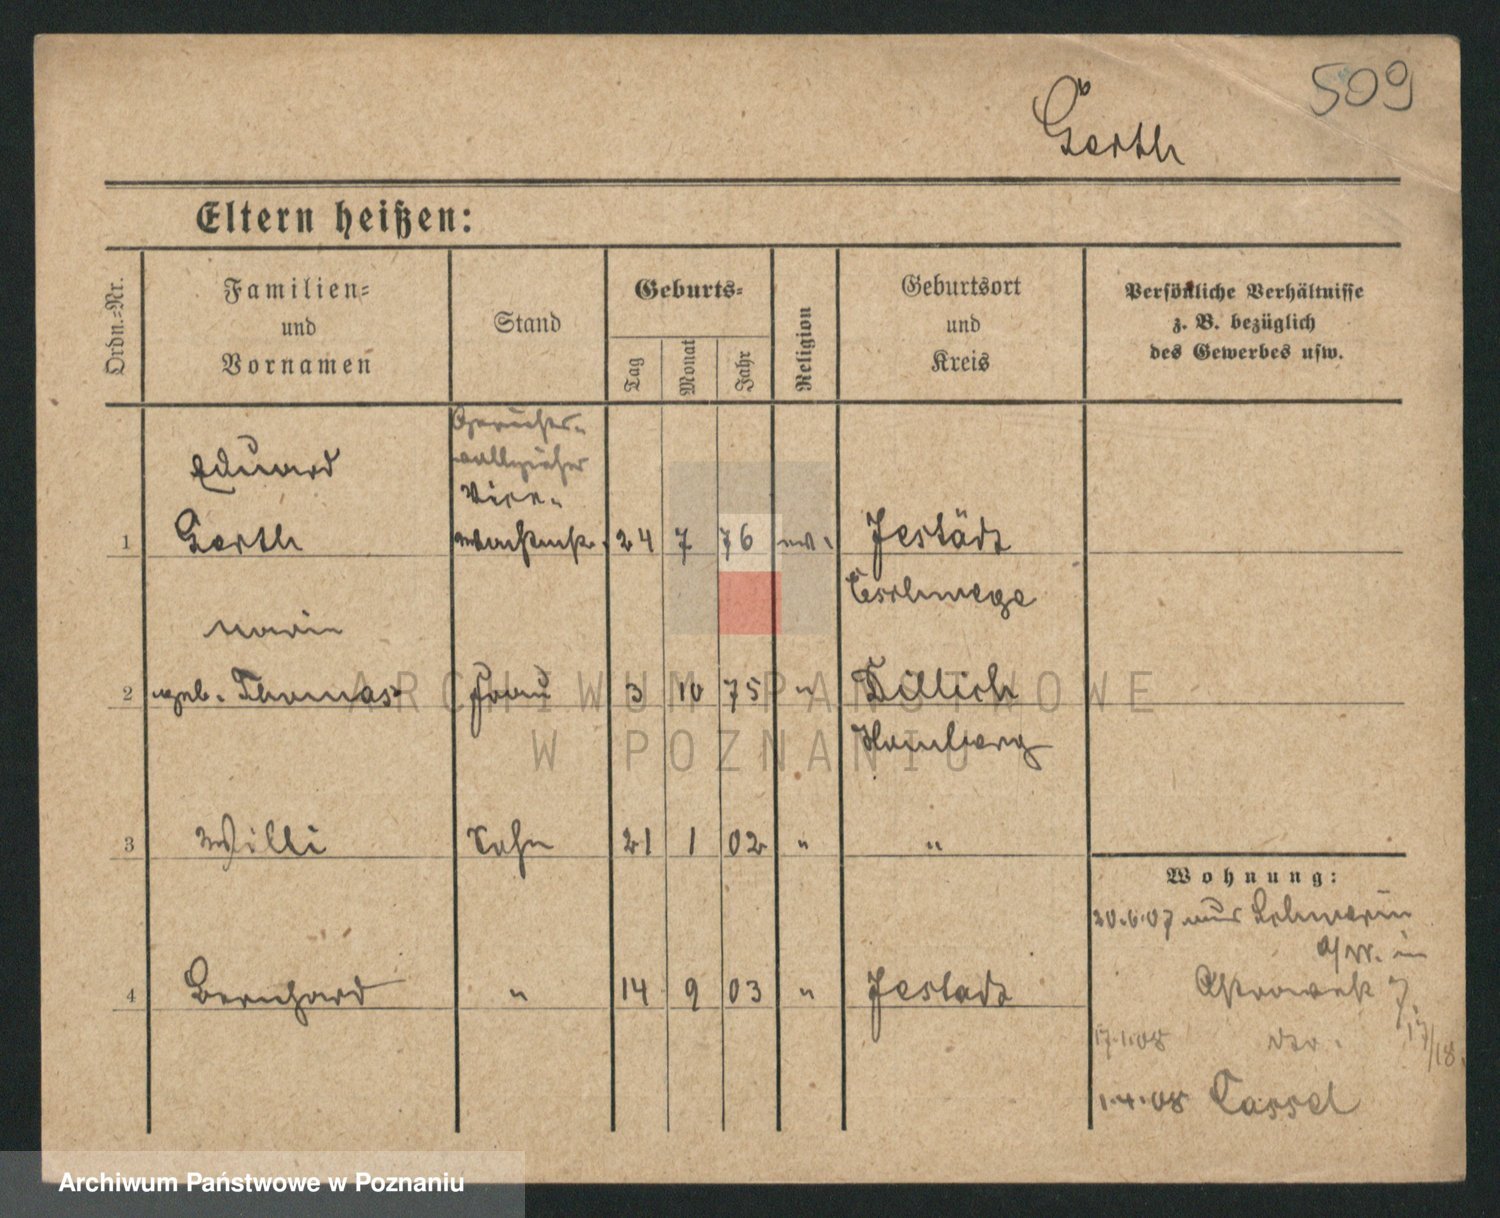 509
Gerth
Eltern heißen:
Ordn.-Nr.
Familien-
und
Vornamen
Stand
Geburts-
Tag
Monat
Jahr
Religion
Geburtsort
und
Kreis
Persönliche Verhältnisse
z. B. bezüglich
des Gewerbes usw.
Gerichts-
vollzieher
Vice-
Eduard
1 Gerth 24 7 76 ev. Jestädt
Eschwege
Marie
2 geb. Thomas Frau 3 10 75 " Dillich
Homberg
3 Willi Sohn 21 1 02 " "
Wohnung:
20.6.07 aus Schwerin
a/W. in
4 Bernhard " 14 9 03 " Jestädt
17/18.
17.1.08
1.4.08 Cassel
ARCHIWUM PAŃSTWOWE
W POZNANIU
Archiwum Państwowe w Poznaniu